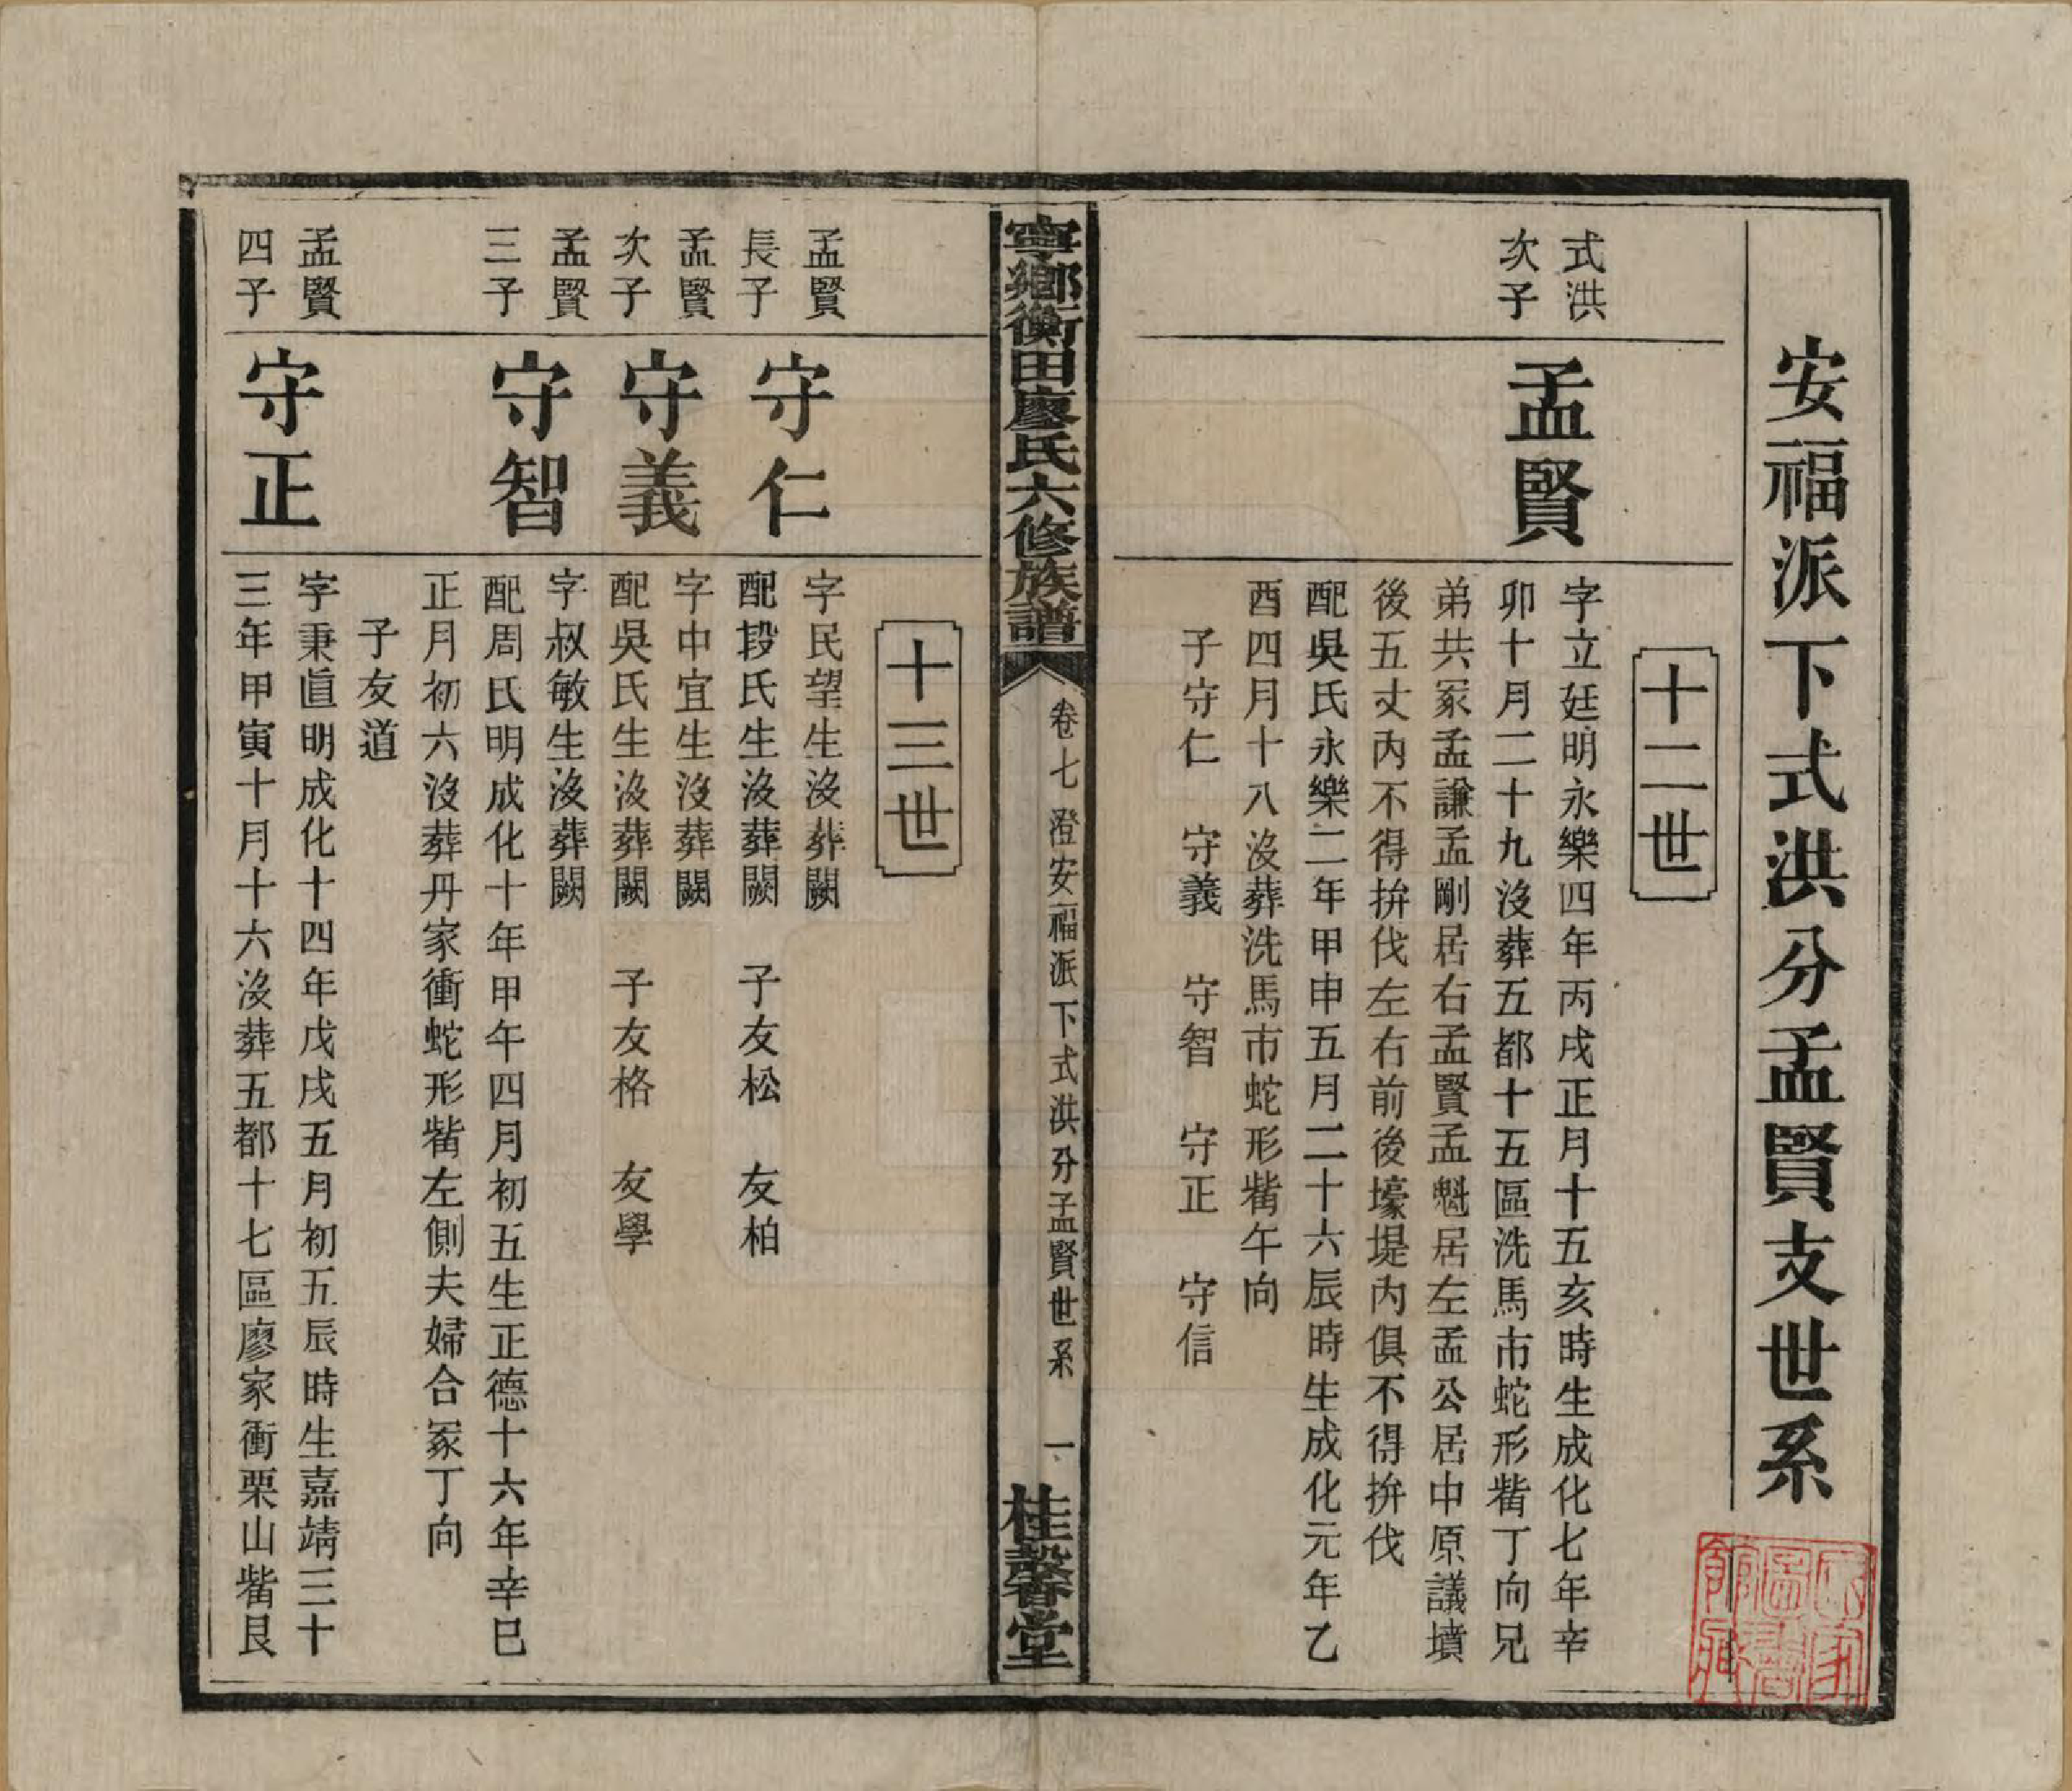 安福派下式洪分孟賢支世系
十二世
式洪
次子
孟賢
字立廷明永樂四年丙戌正月十五亥時生成化七年辛
卯十月二十九沒葬五都十五區洗馬市蛇形觜丁向兄
弟共冢孟謙孟剛居右孟賢孟魁居左孟公居中原議墳
後五丈內不得拚伐左右前後壕堤內俱不得拚伐
配吳氏永樂二年甲申五月二十六辰時生成化元年乙
酉四月十八沒葬洗馬市蛇形觜午向
子守仁　守義　守智　守正　守信
寧鄉衡田廖氏六修族譜
卷七　澄安福派下式洪分孟賢世系　一
桂馨堂
十三世
孟賢
長子
守仁
字民望生沒葬闕
配段氏生沒葬闕　子友松　友柏
孟賢
次子
守義
字中宜生沒葬闕
配吳氏生沒葬闕　子友格　友學
孟賢
三子
守智
字叔敏生沒葬闕
配周氏明成化十年甲午四月初五生正德十六年辛巳
正月初六沒葬丹家衝蛇形觜左側夫婦合冢丁向
子友道
孟賢
四子
守正
字秉眞明成化十四年戊戌五月初五辰時生嘉靖三十
三年甲寅十月十六沒葬五都十七區廖家衝栗山觜艮